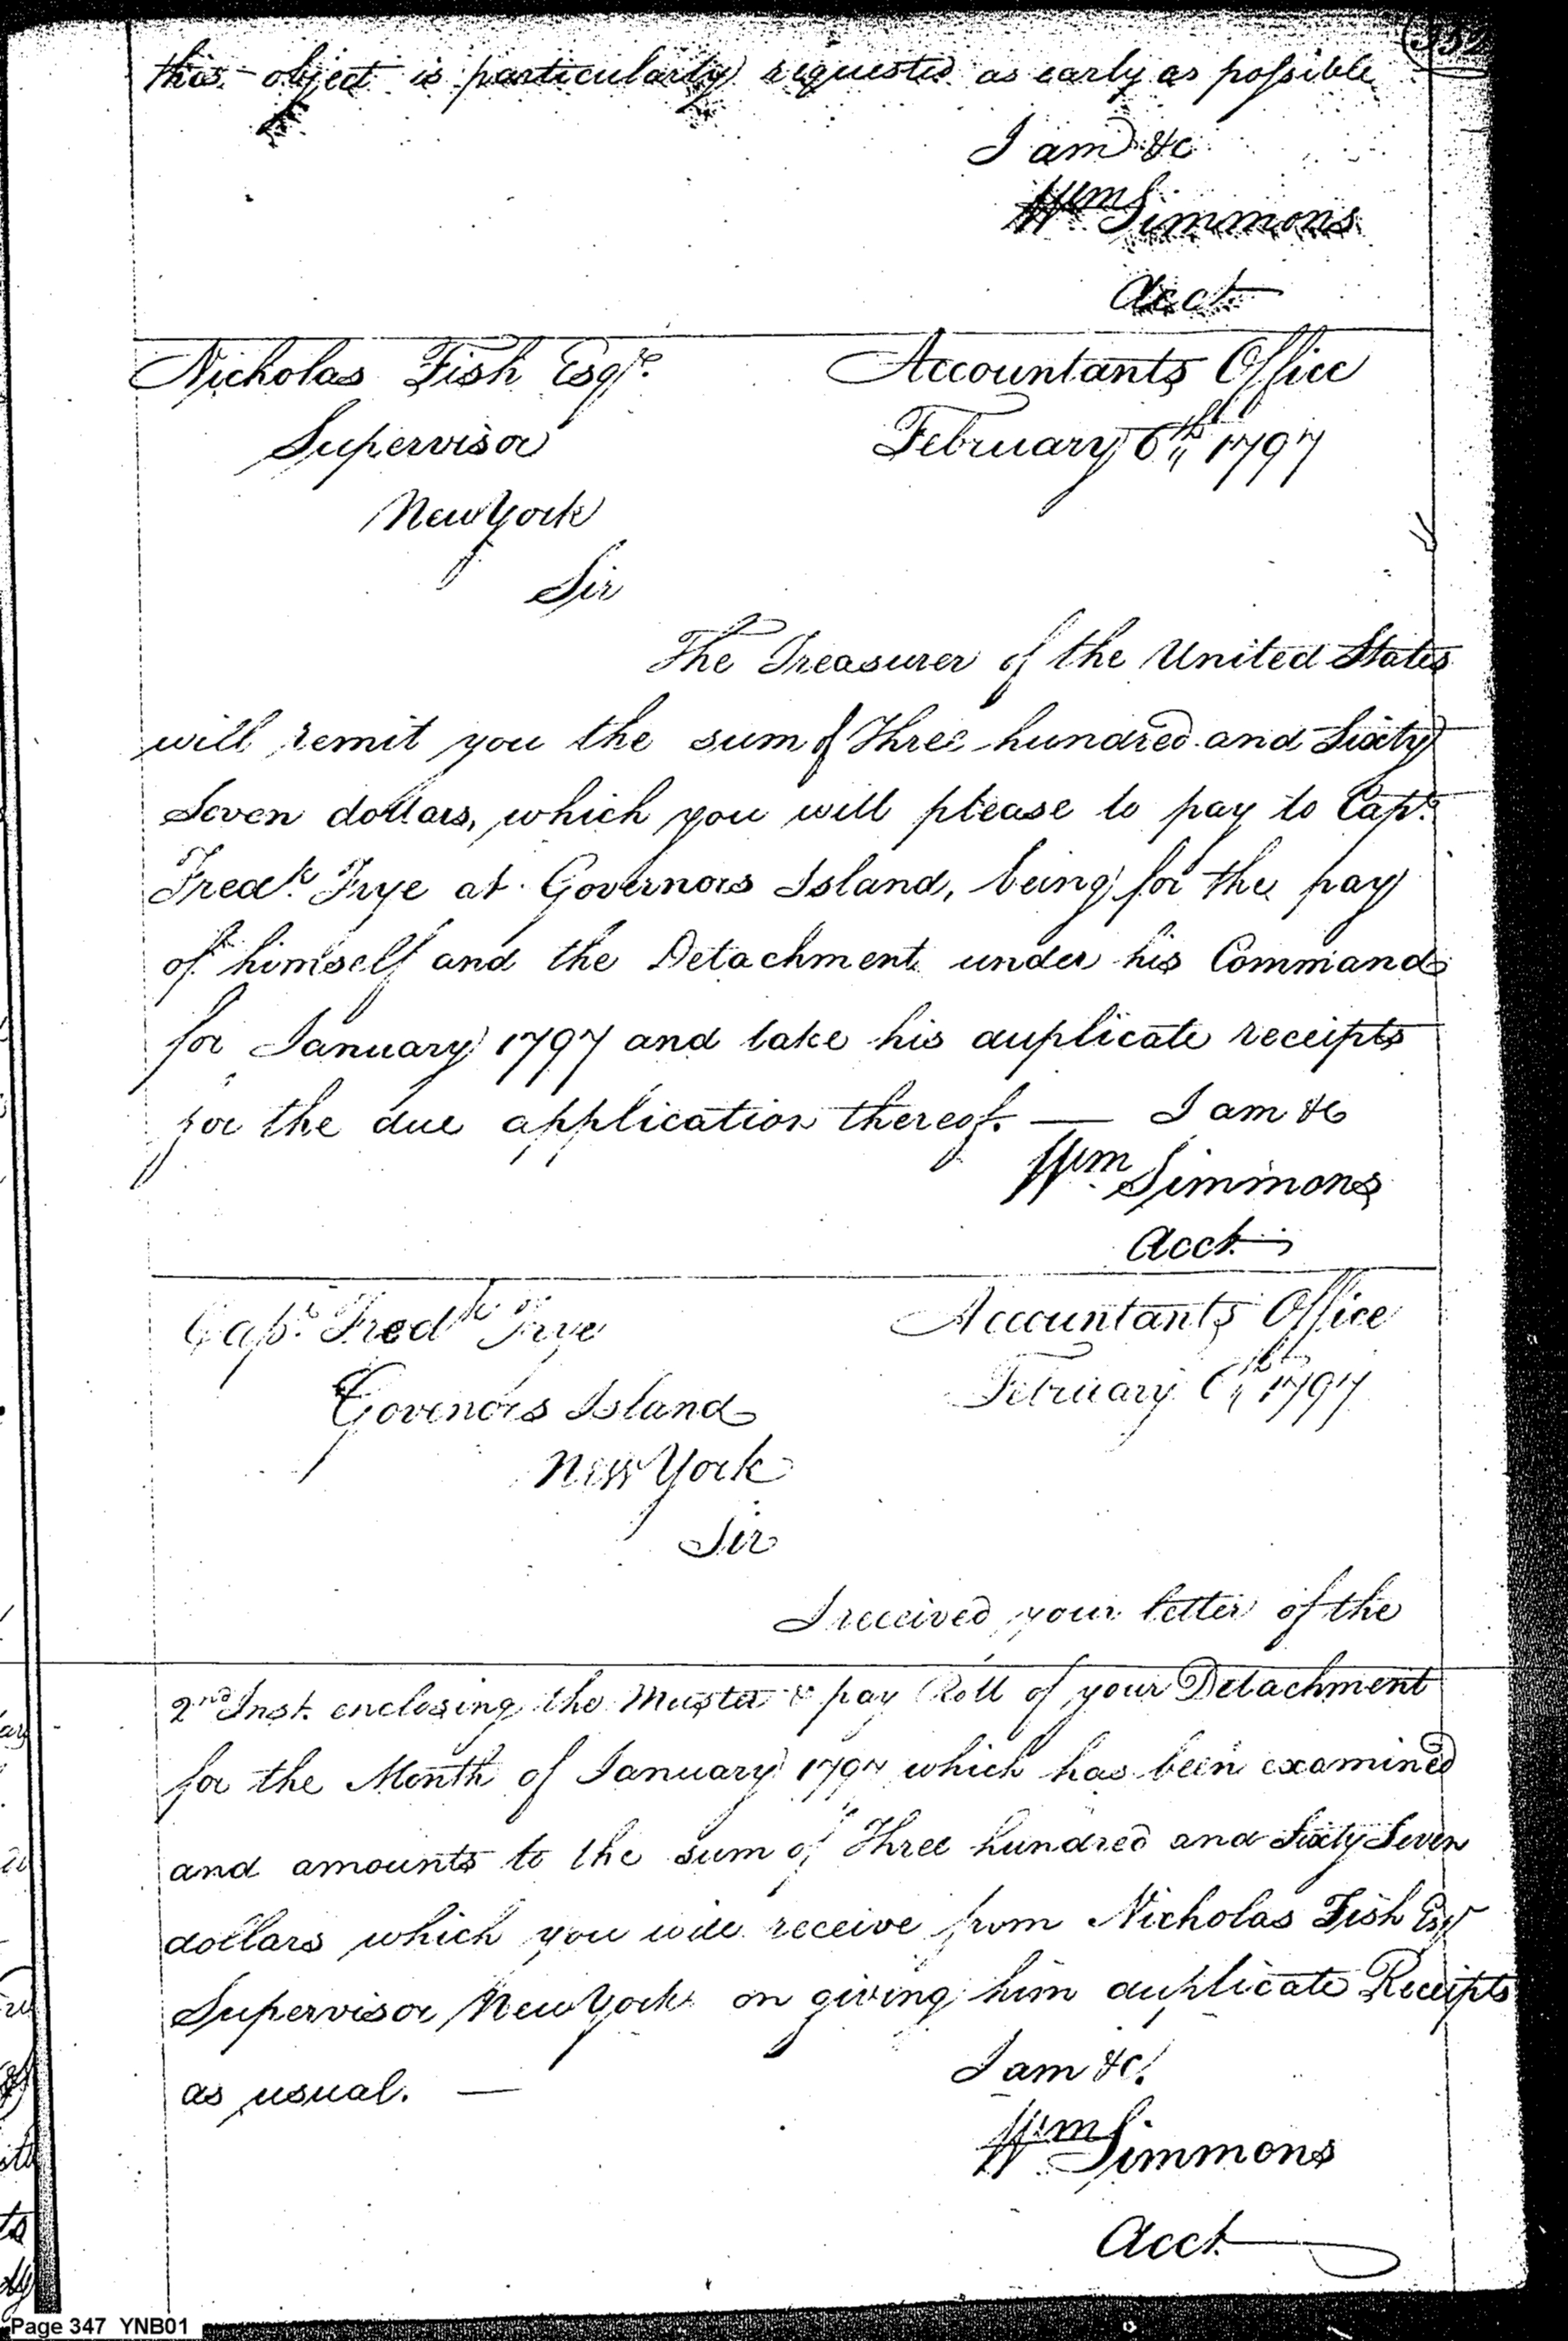 this object is particularly requested as early as possible
I am &c
Wm Simmons
Acct
Nicholas Fish Esqr.
Accountants Office
Supervisor
February 6th 1797
New York
Sir
The Treasurer of the United States
will remit you the sum of Three hundred and Sixty
Seven dollars, which you will please to pay to Capt.
Fredk. Frye at Governors Island, being for the pay
of himself and the Detachment under his Command
for January 1797 and take his duplicate receipts
for the due application thereof. — I am &c
Wm Simmons
Acct.
Capt. Fredk Frye
Accountants Office
Govenors Island
February 6th 1797
New York
Sir
I received your letter of the
2nd Inst. enclosing the Muster & pay Roll of your Detachment
for the Month of January 1797 which has been examined
and amounts to the sum of Three hundred and Sixty Seven
dollars which you will receive from Nicholas Fish Esqr
Supervisor New York on giving him duplicate Receipts
as usual. —
I am &c.
Wm Simmons
Acct.
Page 347 YNB01